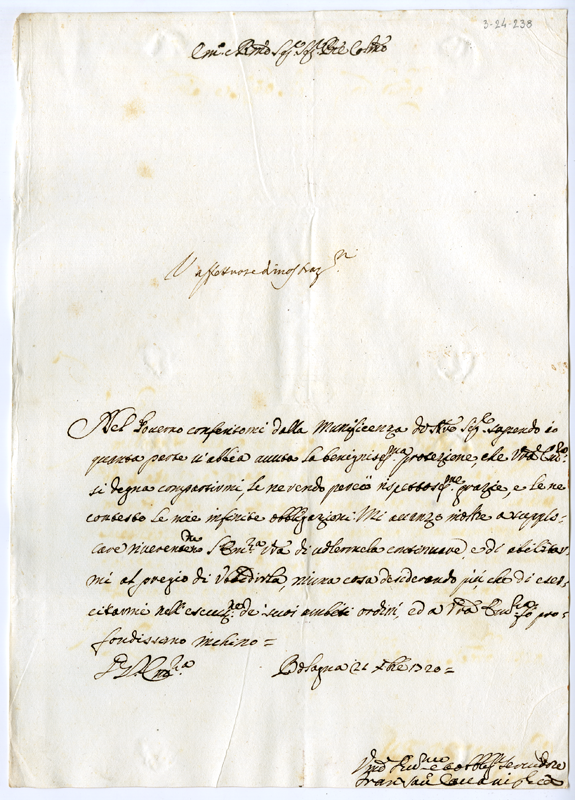 3-24-238
Em.o e Rmo Sig.r Sig.r Pne Colmo
affettuose dimostraz.ni
Nel Governo conferitomi dalla Munificenza di Nro Sig.re sapendo io
quanta parte v'abbia avuta la benigniss.ma protezione, che Vra Em.za
si degna compartirmi, le ne rendo perciò rispettosiss.me grazie, e le ne
contesto le mie infinite obbligazioni. Mi avanzo inoltre a suppli-
care riverentem.te l'Em.za Vra di volermela continuare, e di abilitar-
mi al pregio di Ubbidirla, niuna cosa desiderando più che di eser-
citarmi nell'esecuz.ne de suoi ambiti ordini, ed a Vra Em.za fò pro-
fondissimo inchino =
Di V. Em.za
Bologna 21 Xbre 1720 =
Um.o Div.mo et obblig.mo servidore